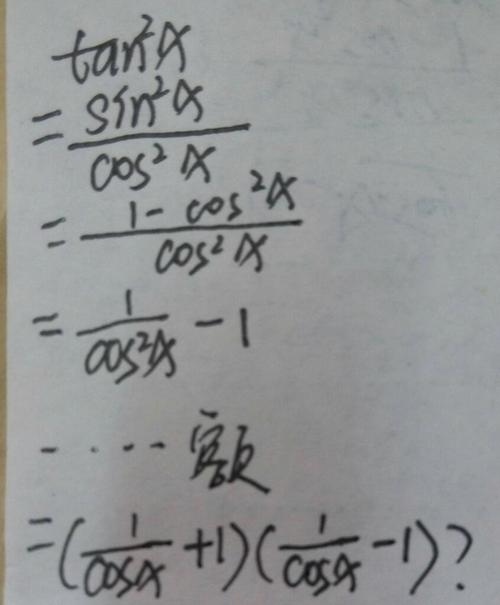 tan²α
= sin²α / cos²α
= 1 - cos²α / cos²α
= 1 / cos²α - 1
..... 容页
= (1 / cosα + 1)(1 / cosα - 1)?